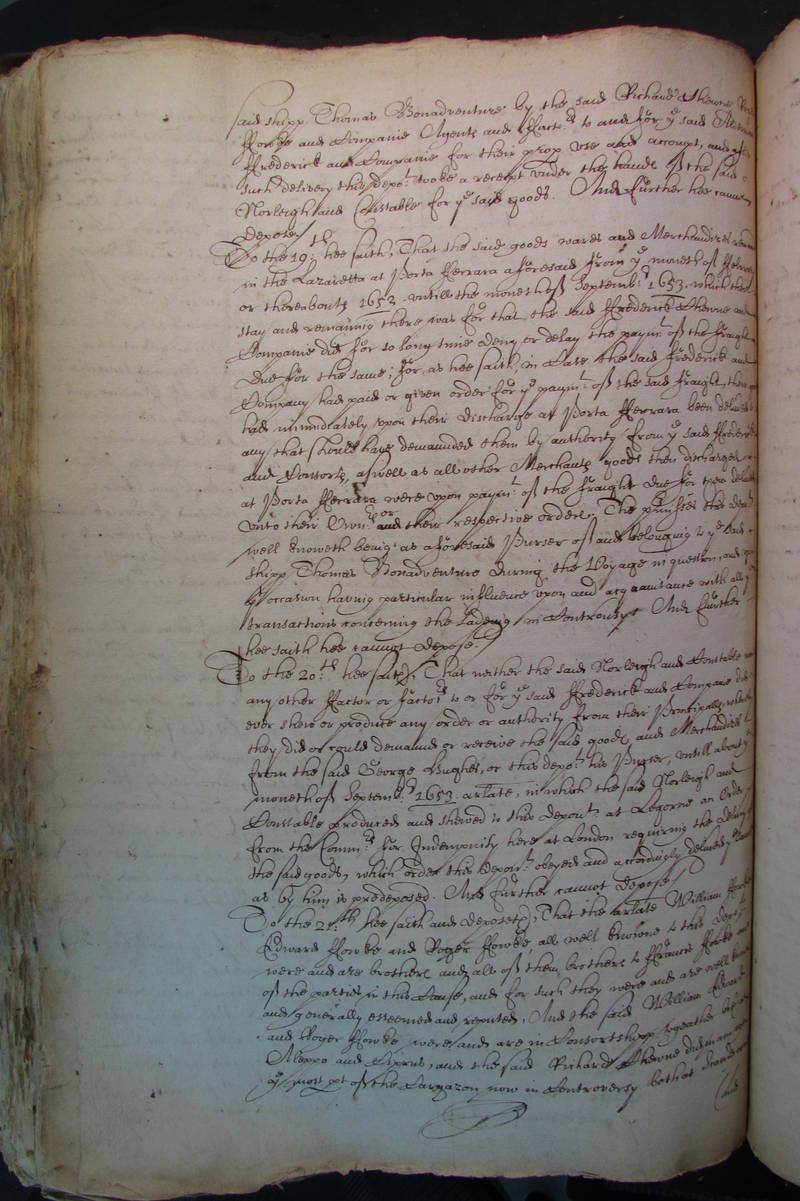 said shipp Thomas Bonadventure by the said Richard Thewne
ffowke and Companie Agents and ffacto:rs to and for ye said
ffrederick and Companie for their prop use and accompt, and
such delivery this depo:t tooke a receipt under the hands of the said
Norleigh and Constable for ye said goods. And further hee cannot
Depose./
To the 19:th hee saith, That the said goods wares and Merchandizes
in the Lazaretta at Porta fferrara aforesaid from ye moneth of
or thereabouts 1652. untill the moneth of Septemb:r 1653. which their
stay and remainig there was for that the said ffrederick Thewne and
Companie did for so long time deny or delay the paym:t of the fraight
due for the same, for, as hee saith, in Case the said ffrederick and
Company had paid or given order for ye paym:t of the said fraight, they
had immediately upon their discharge at Porta fferrara been delivered to
any that should have demaunded them by authority from ye said ffrederick
and Consorts, aswell as all other Merchants goods then discharged
at Porta fferrara were upon paym:t of the fraight due for them delivered
unto their Own:rs or their respective orders. The premisses this depo:t
well knoweth being as aforesaid Purser of and belonging to ye said
shipp Thomas Bonadventure during the Voyage in question, and
by occasion having particular influence upon and acquaintance with all ye
transactions concerning the Ladeing in Controversy. And further
hee saith hee cannot depose./
To the 20:th hee saith, That neither the said Norleigh and Constable nor
any other ffactor or facto:rs to or for ye said ffrederick and Companie did
ever shew or produce any order or authority from their Principalls, whereby
they did or could demaund or receive the said goods and Merchandizes
from the said George Hughes, or this depo:t his Purser, untill about ye
moneth of Septemb:r 1653. arlate, in which the said Norleigh and
Constable produced and shewed to this depon:t at Legorne an Order
from the Comm:rs for Indempnity here at London requiring the delivery
the said goods, which order this depon:t obeyed and accordingly delivered
as by him is predeposed. And further cannot depose./
To the 21:th hee saith and deposeth, That the arlate William ffowke
Edward ffowke and Roger ffowke, all well knowne to this depo:t
were and are brothers and all of them brothers to ffrancis ffowke
of the parties in this Cause, and for such they were and are well knowne
and generally esteemed and reputed, And the said William Edward
and Roger ffowke were and are in Consortshipp together
Aleppo and Ciprus, and the said Richard Thewne did
ye most pt of the Cargazon now in Controversy
and